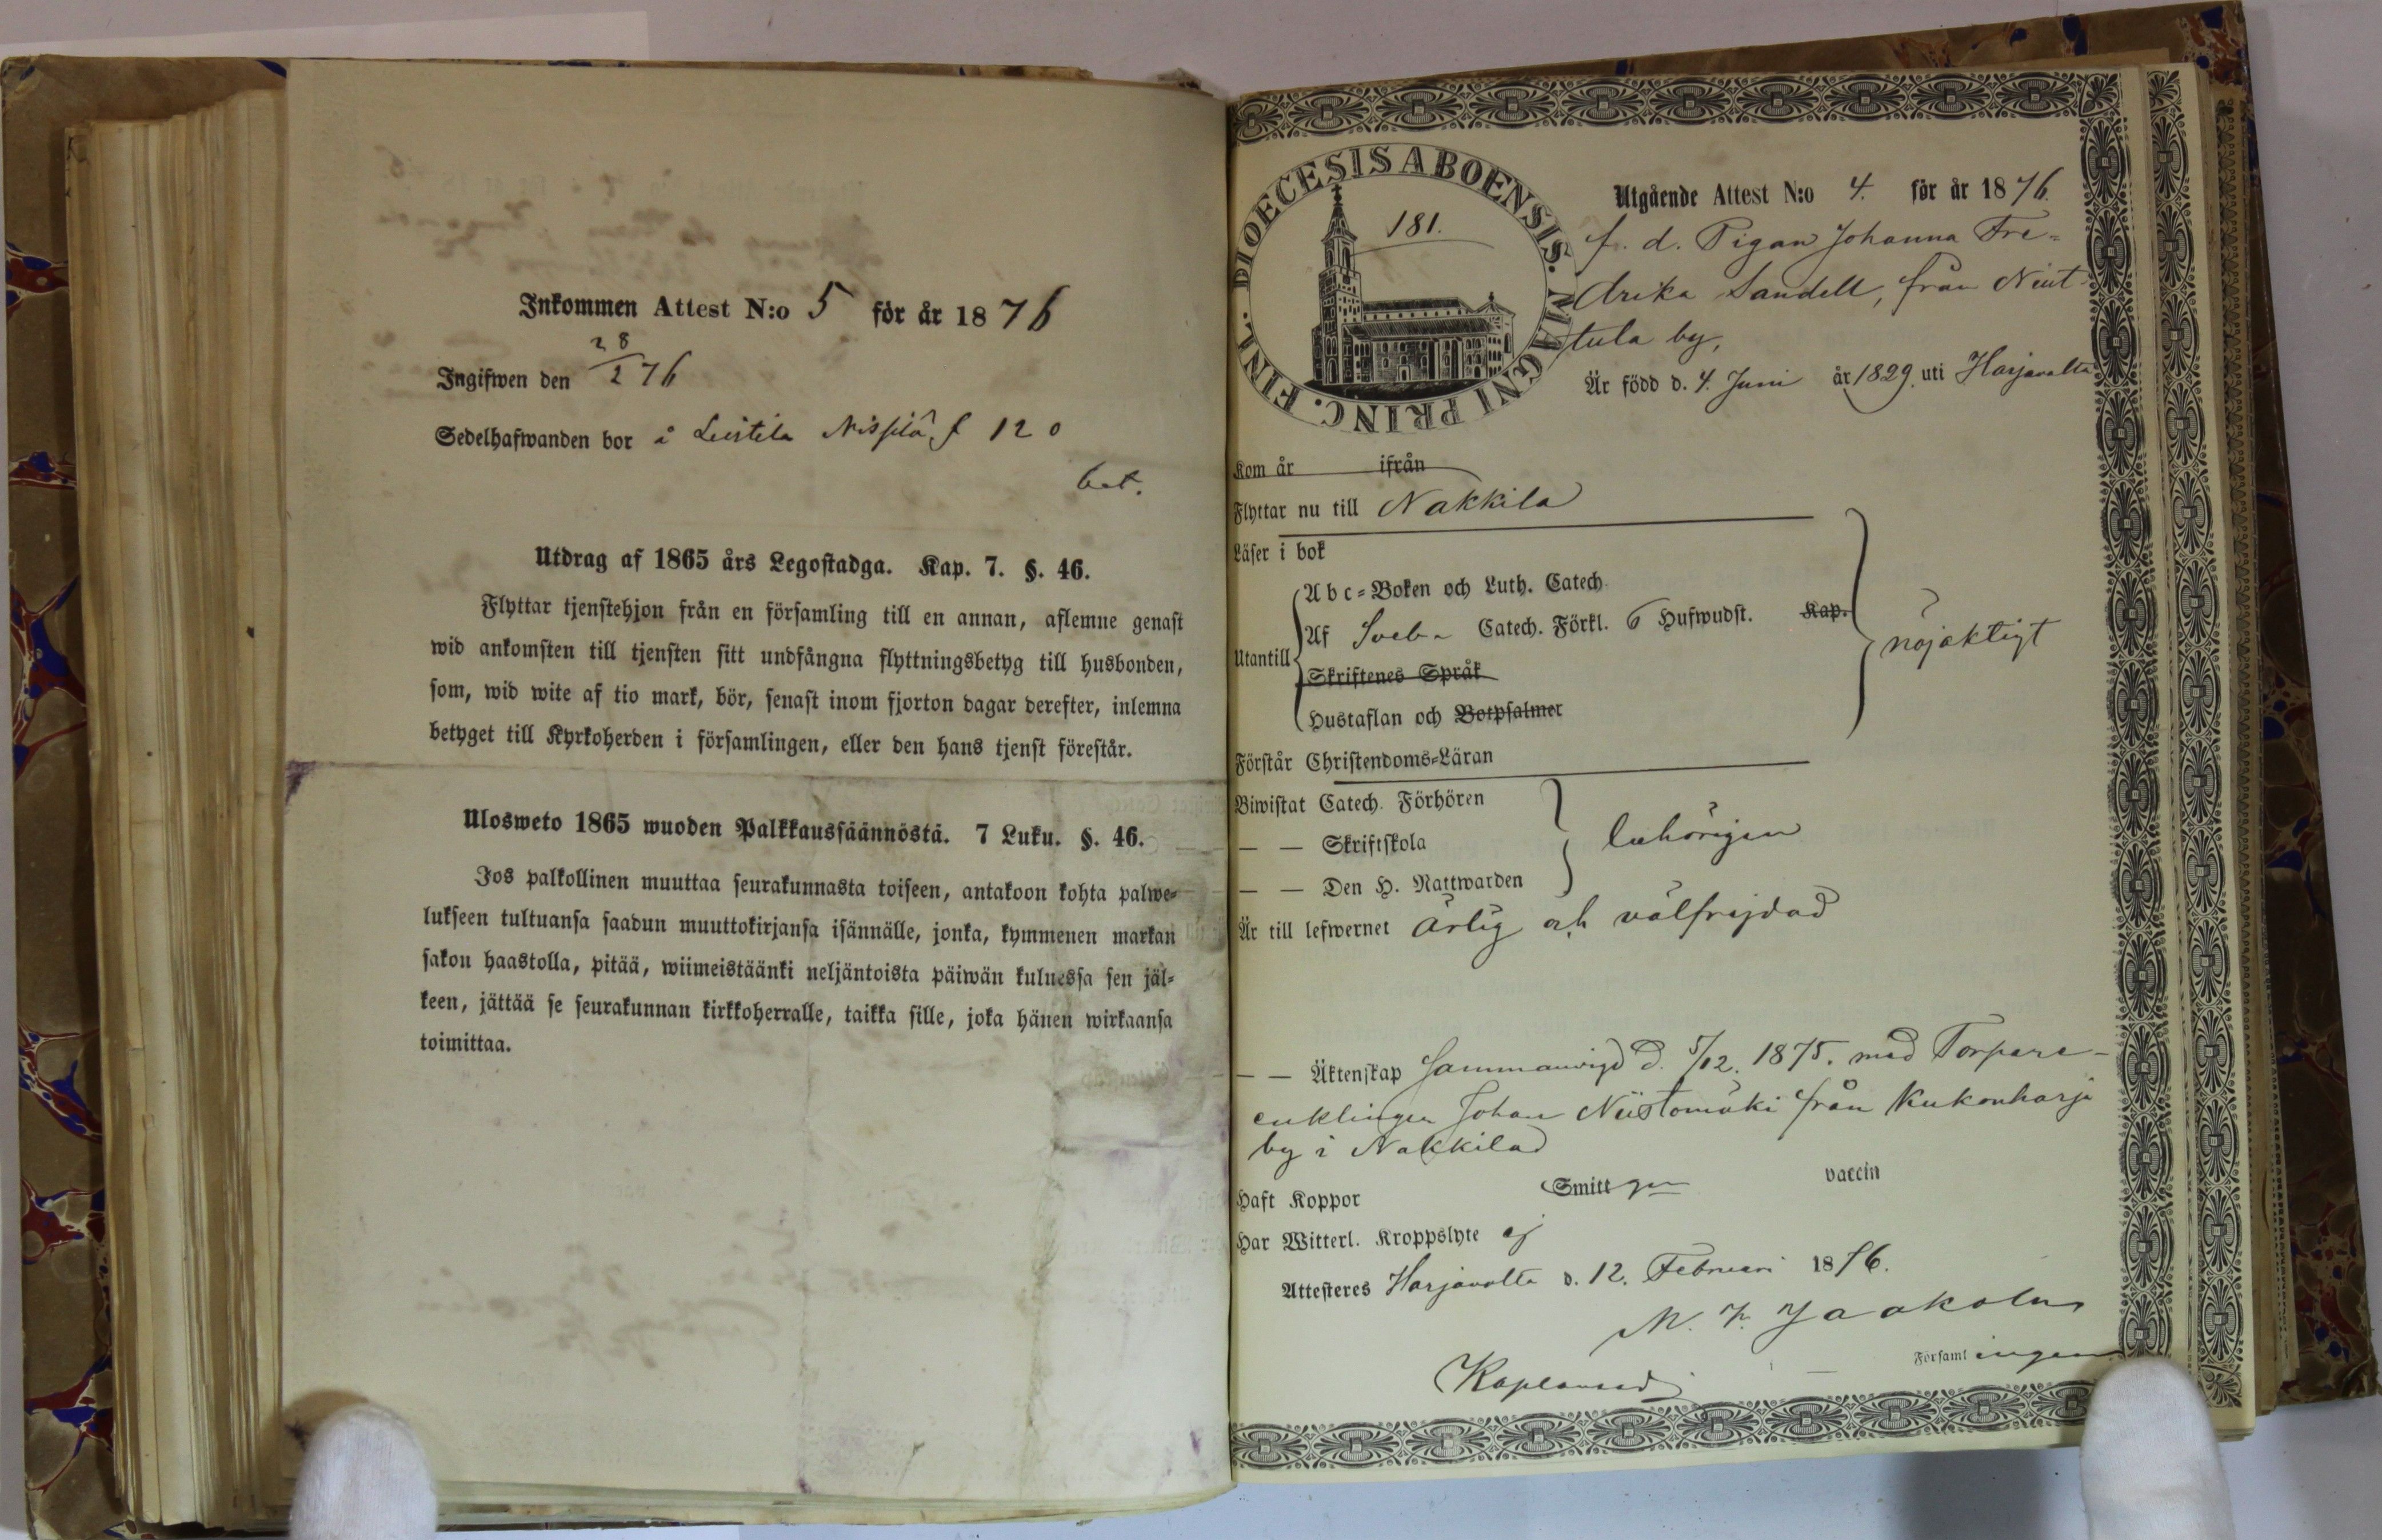 Inkommen Attest N:o 5 för år 1876
Ingifwen den 28/2 76
Sedelhafwanden bor å Leistila f 120
bet.
Utdrag af 1865 års Legostadga. Kap. 7. §. 46.
Flyttar tjenstehjon från en församling till en annan, aflemne genast
wid ankomsten till tjensten sitt undfångna flyttningsbetyg till husbonden,
som, wid wite af tio mark, bör, senast inom fjorton dagar derefter, inlemna
betyget till Kyrkoherden i församlingen, eller den hans tjenst förestår.
Ulosweto 1865 wuoden Palkkaussäännöstä. 7 Luku. §. 46.
Jos palkollinen muuttaa seurakunnasta toiseen, antakoon kohta palwe=
lukseen tultuansa saadun muuttokirjansa isännälle, jonka, kymmenen markan
sakon haastolla, pitää, wiimeistäänki neljäntoista päiwän kuluessa sen jäl=
keen, jättää se seurakunnan kirkkoherralle, taikka sille, joka hänen wirkaansa
toimittaa.
DIOECESIS ABOENSIS. MAGNI PRINC. FINL.
181.
Utgående Attest N:o 4. för år 1876.
f. d. Pigan Johanna Fre=
drika Sandell, från Niut
tula by,
Är född d. 4. Juni år 1829. uti Harjavalta
Kom år ifrån
Flyttar nu till Nakkila
Läser i bok
Abc=Boken och Luth. Catech.
Utantill
Af Sveb. Catech. Förkl. 6 Hufwudst. Kap.
Skriftenes Språk
Hustaflan och Botpsalmer
nöjaktigt
Förstår Christendoms=Läran
Biwistat Catech. Förhören
— — Skriftskola
— — Den H. Nattwarden
behörigen
Är till lefwernet ärlig och välfrejdad
— — Äktenskap Sammanvigd d. 5/12. 1875. med Torpare-
enklingen Johan Niistomäki från Kukonharja
by i Nakkila
Haft Koppor Smitt vaccin
Har Witterl. Kroppslyte ej
Attesteres Harjavalta d. 12. Februari 1876.
Jaakola
Kaplan Församl ingen